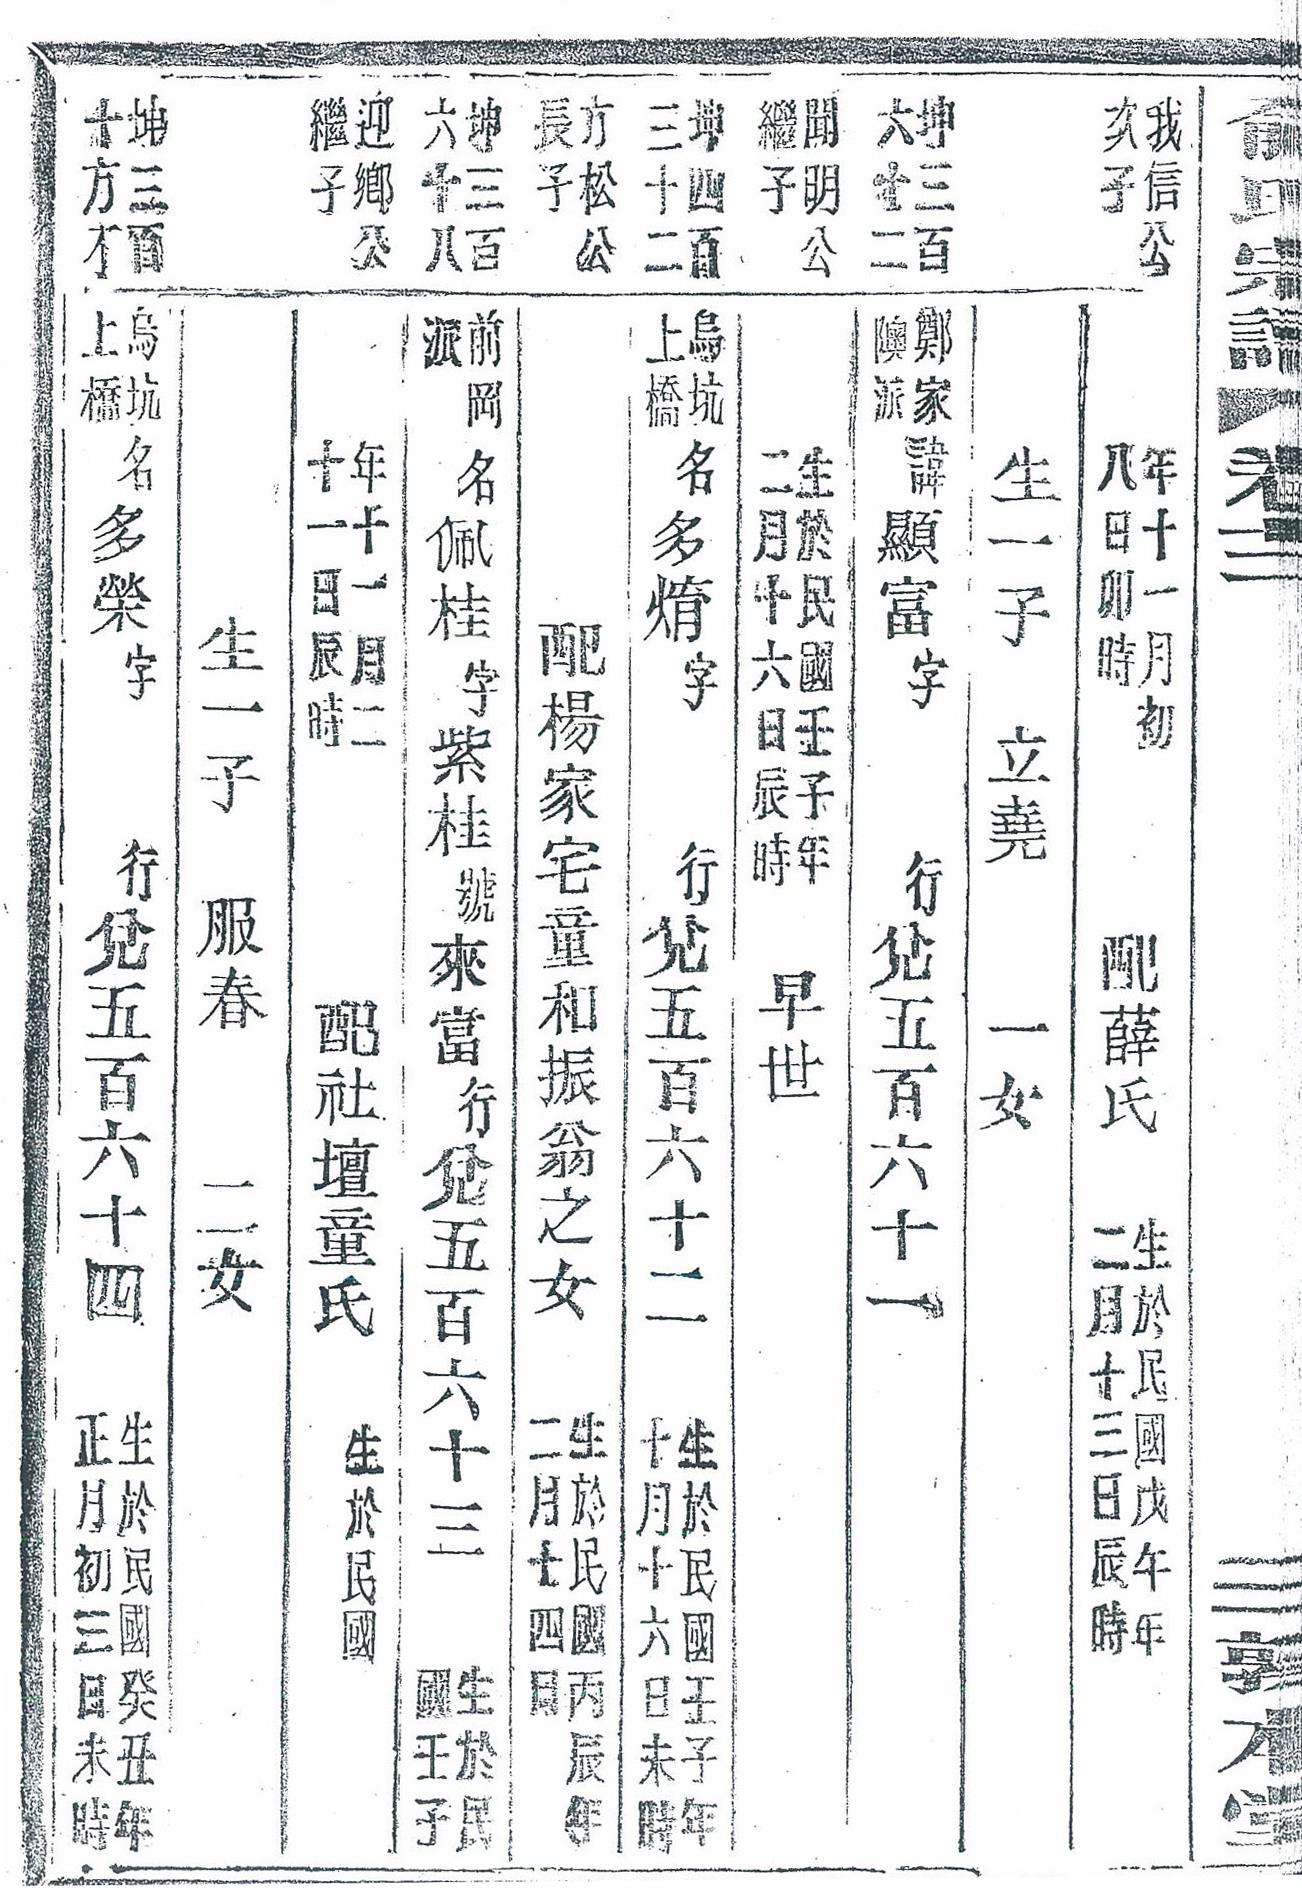 俞氏宗譜 卷二 敦本堂
我信公
次子
年十一月初
八日卯時
配薛氏
生於民國戊午年
二月十三日辰時
生一子 立堯 一女
坤三百
六十二
鄭家
隩派
諱顯富字 行兌五百六十一
聞明公
繼子
生於民國壬子年
二月十六日辰時
早世
坤四百
三十二
烏坑
上橋
名多煃字 行兌五百六十二
生於民國壬子年
十月十六日未時
方松公
長子
配楊家宅童和振翁之女
生於民國丙辰年
二月十四日
坤三百
六十八
前岡
派
名佩桂字紫桂號來富行兌五百六十三
生於民
國壬子
迎鄉公
繼子
年十一月二
十一日辰時
配社壇童氏
生於民國
生一子 服春 二女
坤三百
十方才
烏坑
上橋
名多榮字 行兌五百六十四
生於民國癸丑年
正月初三日未時